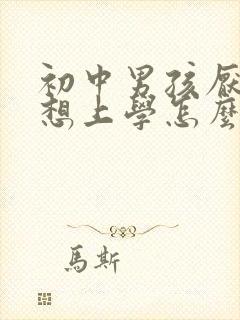 初中男孩厭
想上學怎麼
馬斯